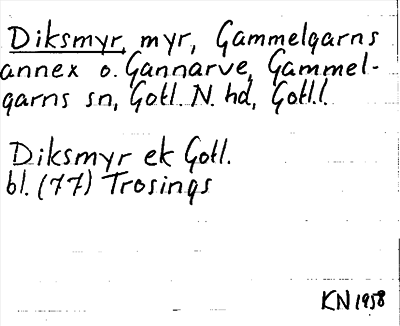 Diksmyr, myr, Gammelgarns
annex o. Gannarve, Gammel-
garns sn, Gotl. N. hd, Gotl.l.
Diksmyr ek Gotl.
bl. (77) Trosings
KN 1958